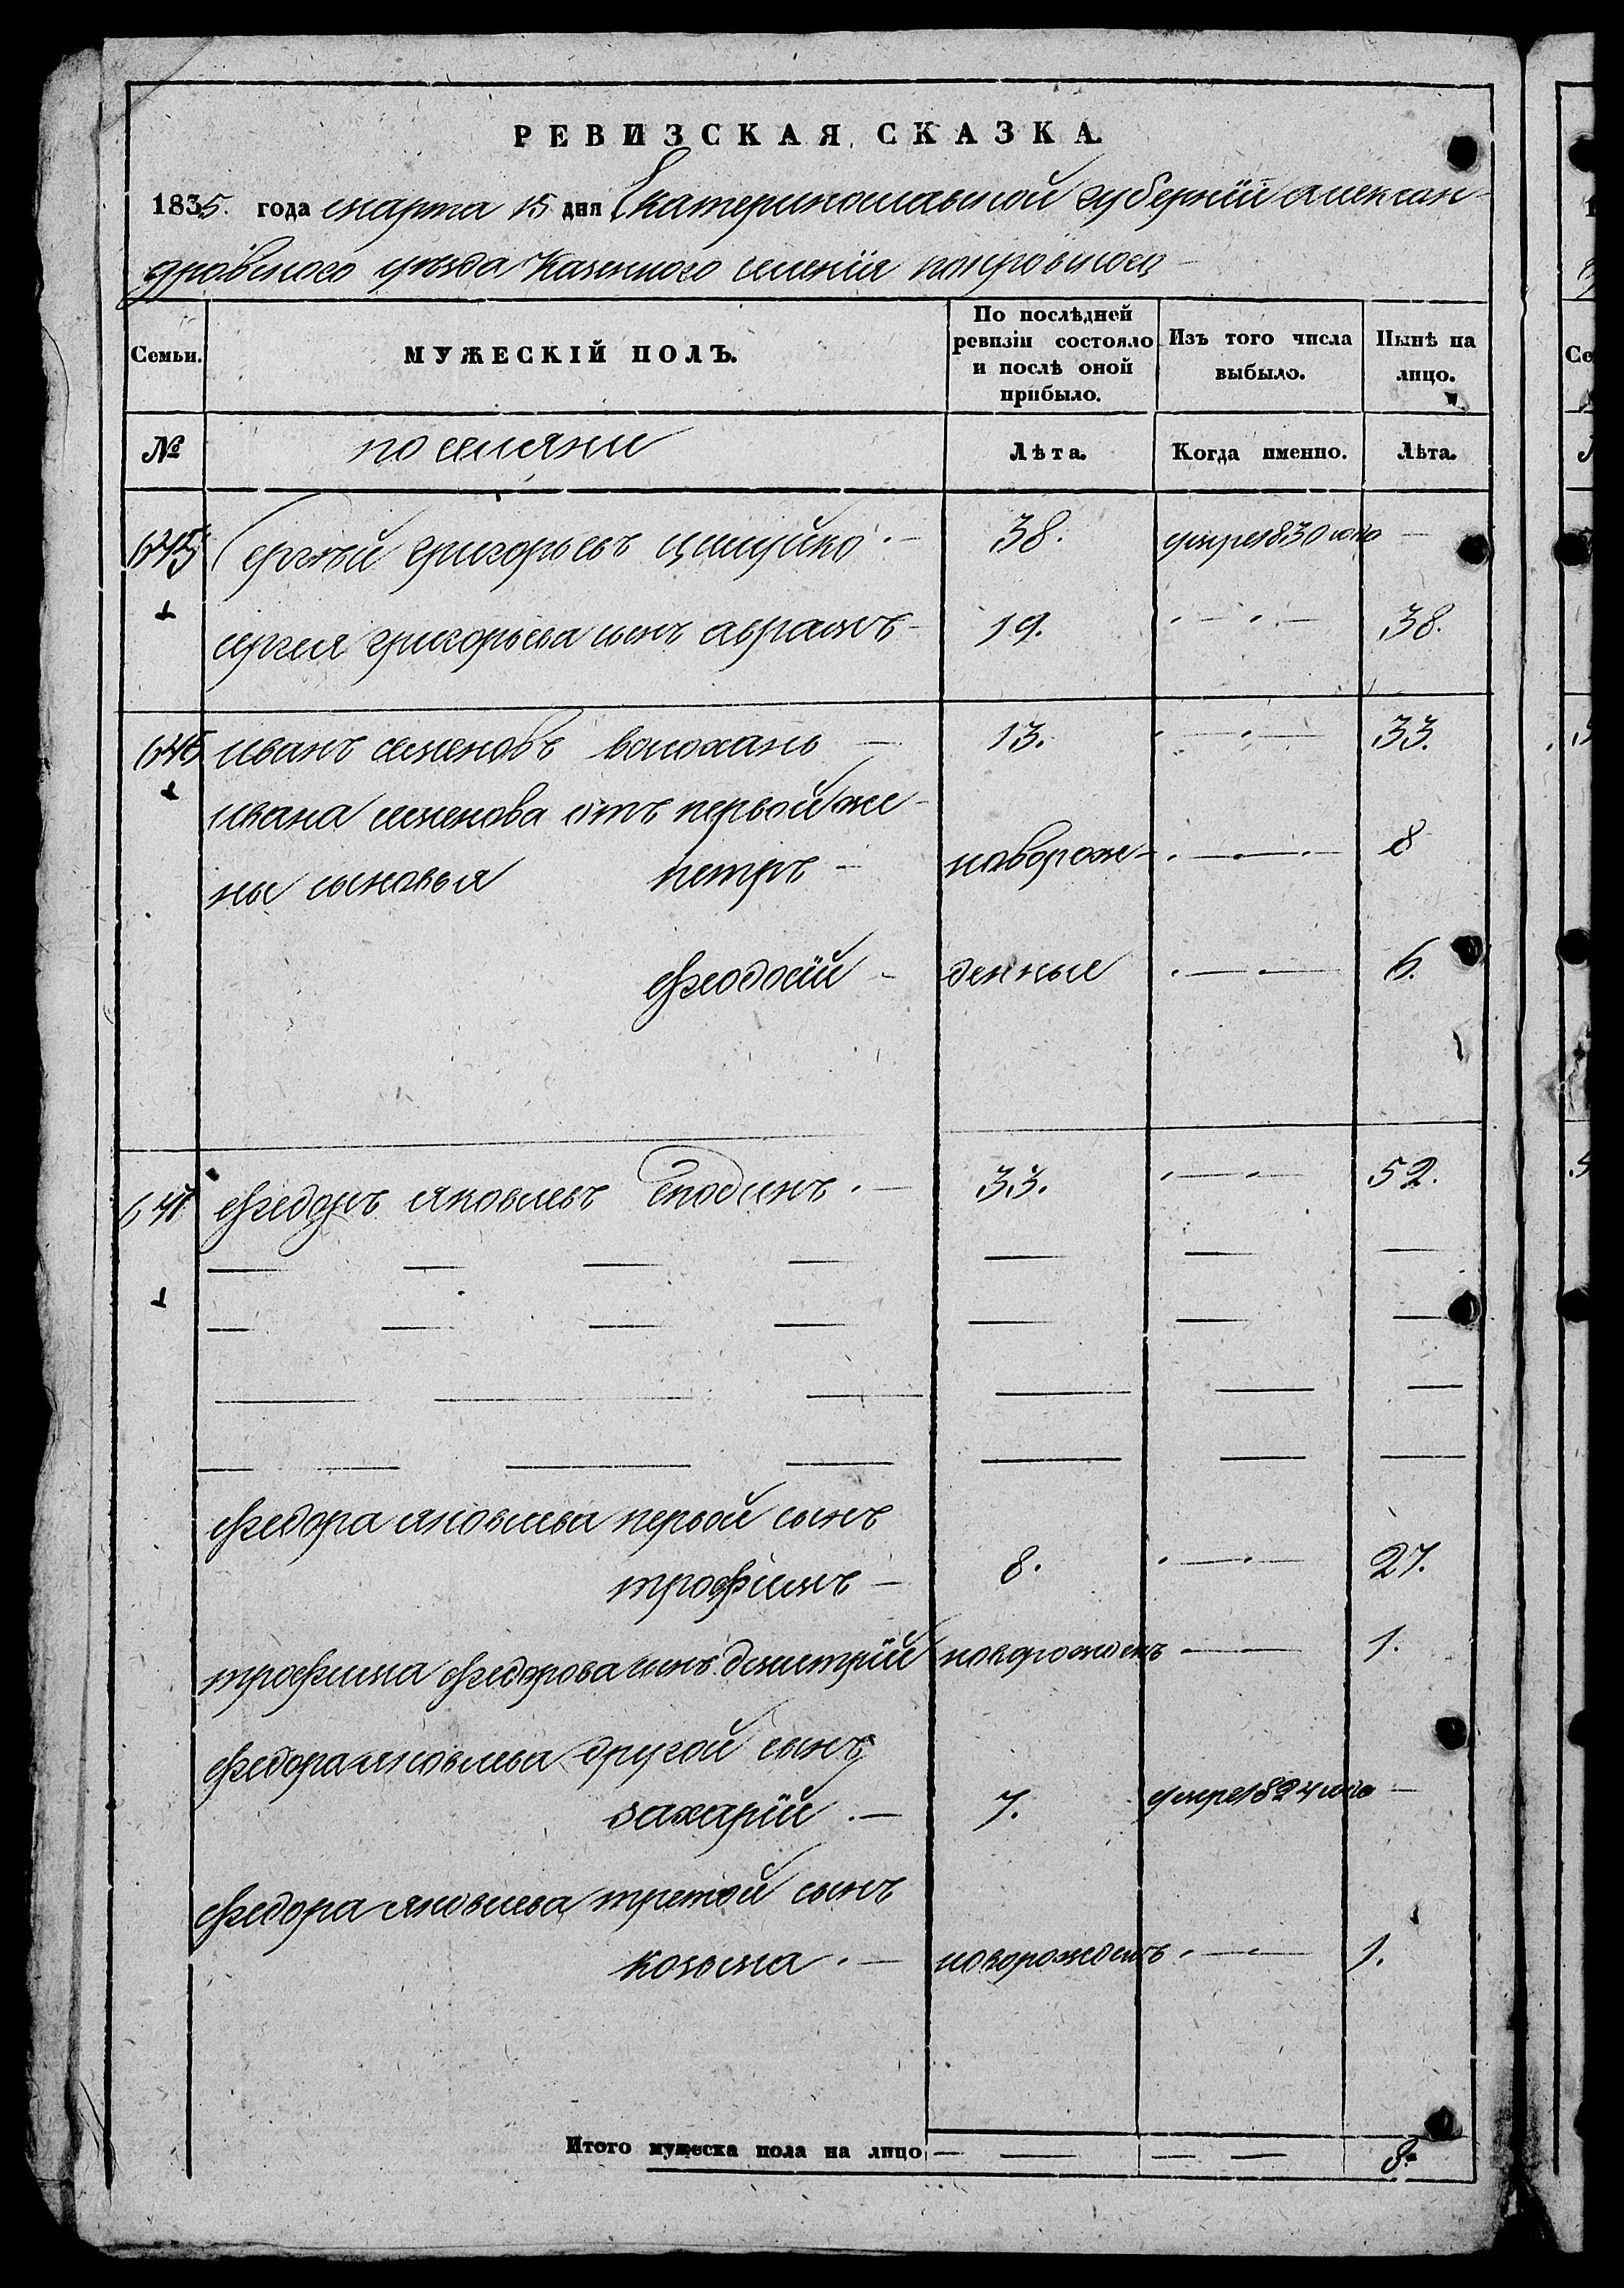 РЕВИЗСКАЯ СКАЗКА.
1835. года марта 15 дня Екатеринославской губернїи Алексан-
дровского уѣзда Казенного селенїя покровского
Семьи. МУЖЕСКІЙ ПОЛЪ. По послѣдней ревизіи состояло и послѣ оной прибыло. Изъ того числа выбыло. Нынѣ на лицо.
№ поселяни Лѣта. Когда именно. Лѣта.
645 Сергѣй григорьевъ 38. умре 1830 года —
сергея григорьева сынъ авраамъ 19. 38.
646 иванъ семеновъ волохань — 13. 33.
ивана семенова отъ первой же-
ны сыновья петръ — новорож- 8
феодосїй — денные 6.
647 федоръ яковлевъ 33. 52.
федора яковлева первой сынъ
трофимъ — 8. 27.
трофима федорова сынъ дмитрїй новорожденъ 1.
федора яковлева другой сынъ
захарїй — 7. умре 1824 года —
федора яковлева третой сынъ
козьма — новорожденъ 1.
Итого мужеска пола на лицо — 8.